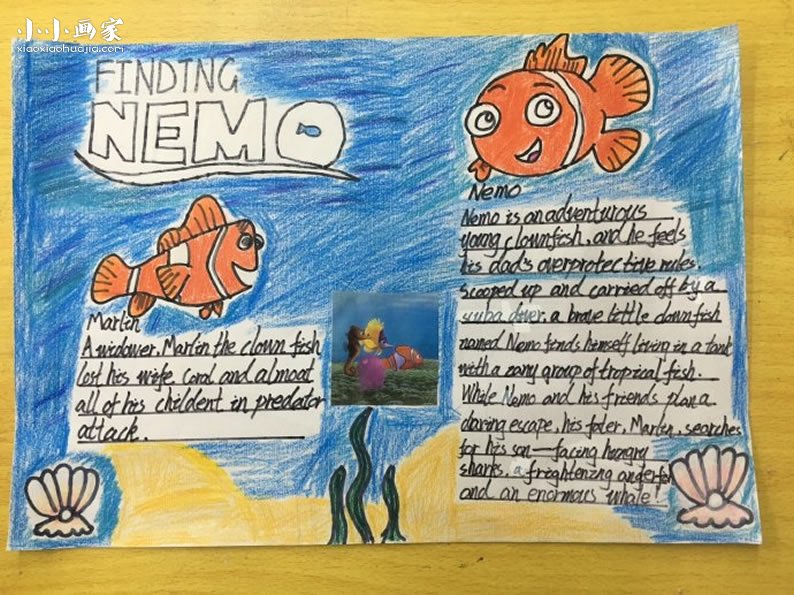 小小画家
xiaoxiaohuajia.com
FINDING
NEMO
Marlin
A widower, Marlin the clown fish
lost his wife, Coral and almost
all of his childent in predator
attack.
Nemo
Nemo is an adventurous
young clownfish, and he feels
his dad's overprotective rules.
Scooped up and carried off by a
scuba diver, a brave little clownfish
named Nemo finds himself living in a tank
with a zany group of tropical fish.
While Nemo and his friends plan a
daring escape, his fater, Marlin, searches
for his son—facing hungry
sharks, a frightening anglerfish
and an enormous whale!